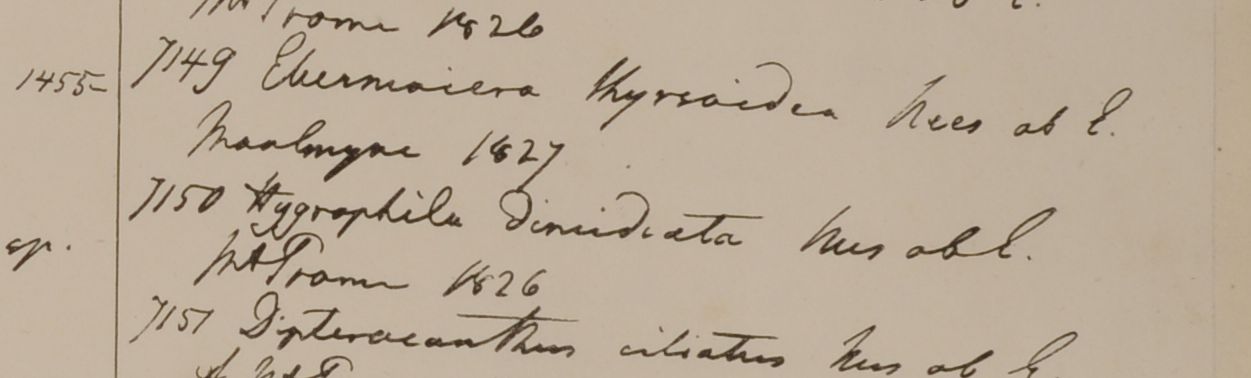 Mt Prome 1826
1455 7149 Ebermaiera thyrsoidea Nees ab E.
Moalmyne 1827
7150 Hygrophila dimidiata Nees ab E.
sp. Mt Prome 1826
7151 Dipteracanthus ciliatus Nees ab E.